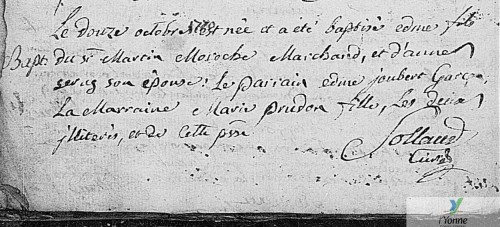 Le douze octobre 1781 née et a été baptisé edme fils
Bapt du Sr Marcin Moroche Marchand, et d'anne
son épouse : Le parrain edme joubert Garçon,
La Marraine Marie prudon fille, Les deux
jlliterés, et de Cette psse
Sollaud
Curé
l'Yonne